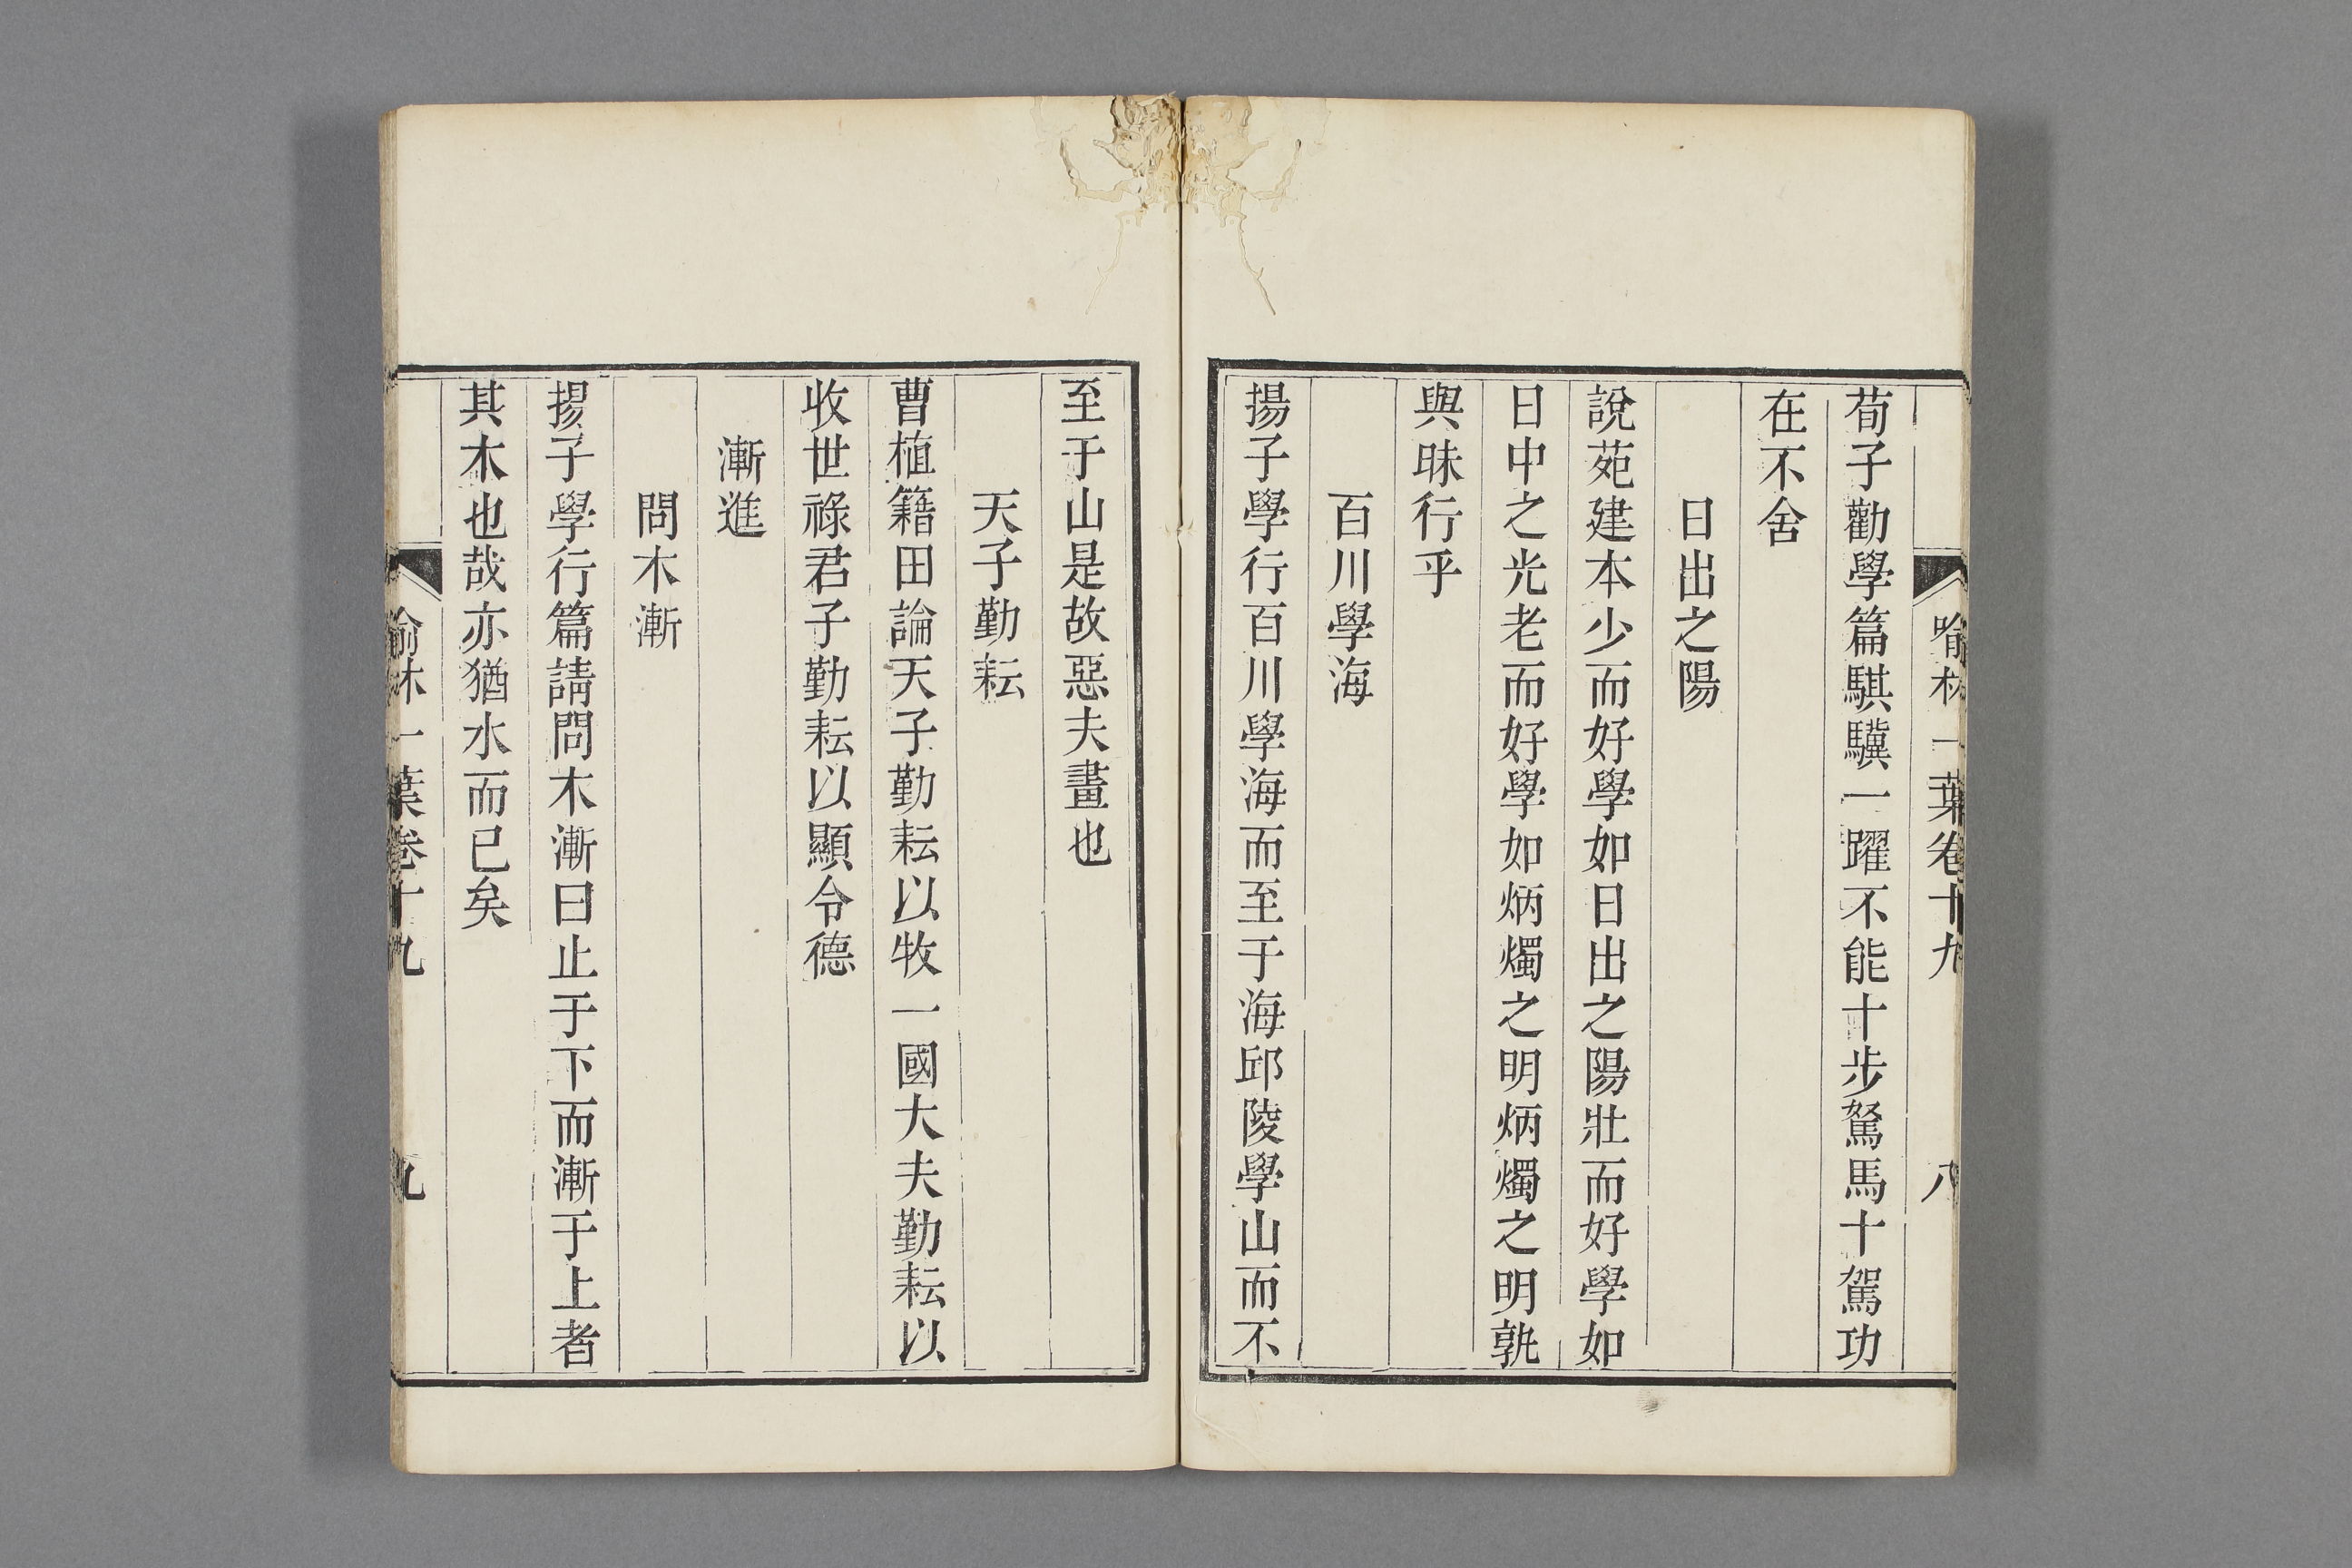 喻林一葉卷十九 八
荀子勸學篇騏驥一躍不能十步駑馬十駕功
在不舍
日出之陽
說苑建本少而好學如日出之陽壯而好學如
日中之光老而好學如炳燭之明炳燭之明孰
與昧行乎
百川學海
揚子學行百川學海而至于海邱陵學山而不
至于山是故惡夫畫也
天子勤耘
曹植籍田論天子勤耘以牧一國大夫勤耘以
收世祿君子勤耘以顯令德
漸進
問木漸
揚子學行篇請問木漸曰止于下而漸于上者
其木也哉亦猶水而已矣
喻林一葉卷十九 九